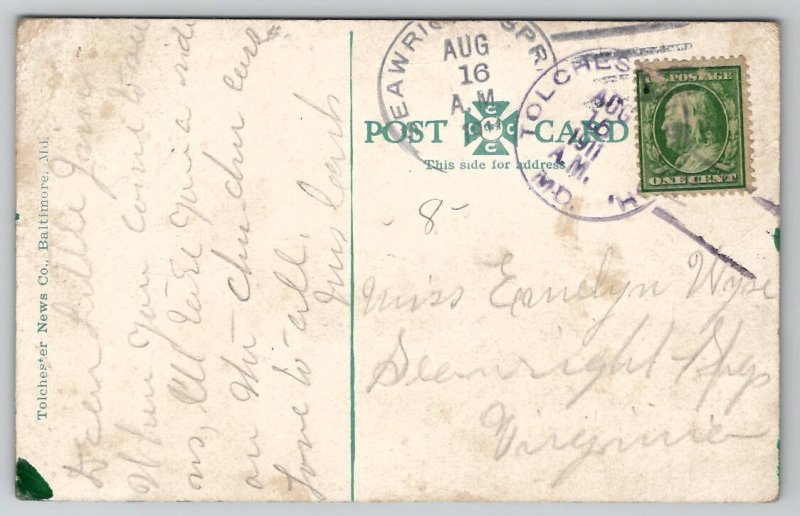 Dear Little
When you come down
us, Ill take you a ride
on the church
Love to all.
Mrs
Tolchester News Co., Baltimore, Md.
POST CARD
This side for address
SEAWRIGHT SPR
AUG
16
A.M.
TOLCHESTER
AUG
15
1911
A.M.
MD.
U.S. POSTAGE
ONE CENT
8-
Miss Evnelyn Wyse
Seawright Spgs
Virginia